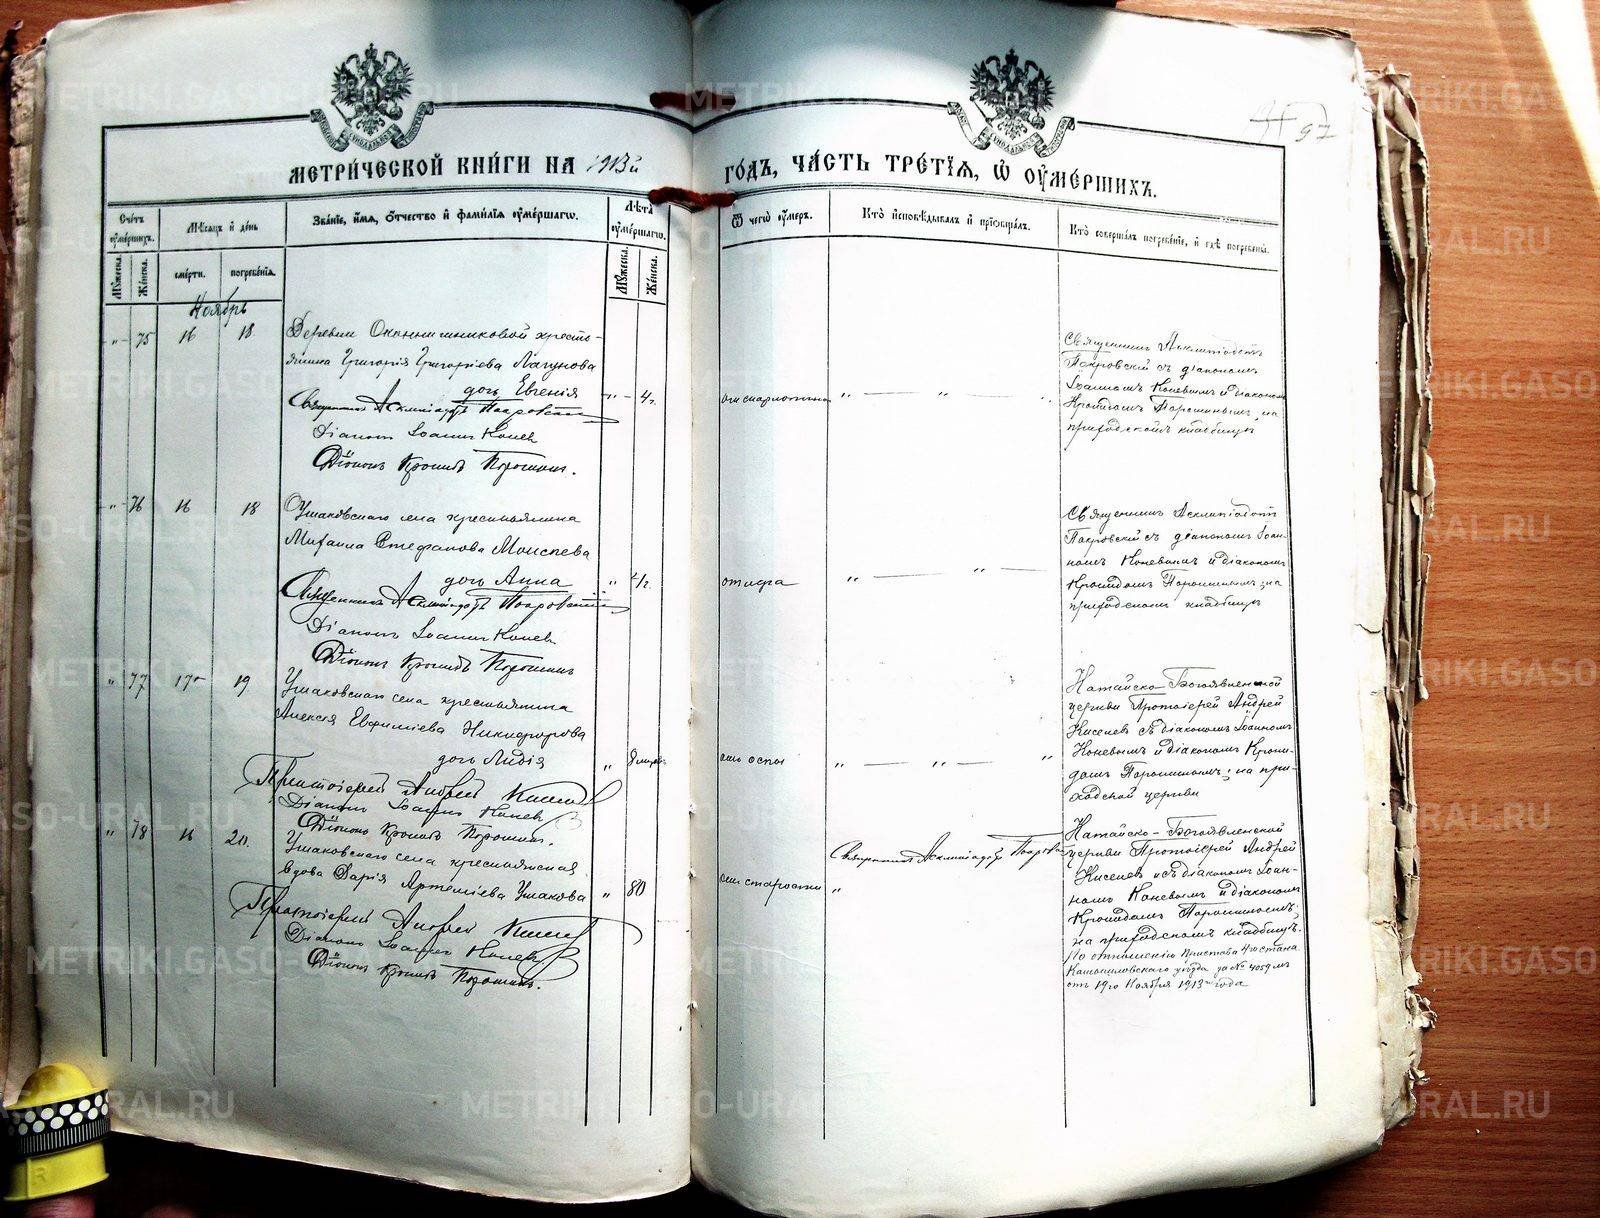 МЕТРИ́ЧЕСКОЙ КНИ́ГИ НА 1913й ГО́ДЪ, ЧА́СТЬ ТРЕ́ТІЯ, Ѡ ОУМЕ́РШИХЪ.
97
Сче́тъ оуме́ршихъ.
Му́жеска.
Же́нска.
Мѣ́сяцъ и де́нь
сме́рти.
погребе́нія.
Зва́ніе, и́мя, о́тчество и фами́лія оуме́ршаго.
Лѣ́та оуме́ршаго.
Му́жеска.
Же́нска.
Ѿ чегѡ̀ оу́меръ.
Кто̀ исповѣ́дывалъ и пріобща́лъ.
Кто̀ соверша́лъ погребе́ніе, и гдѣ̀ погребены̀.
Ноябрь
" 75 16 18
Деревни кресть-
янина Григорія Григоріева Лагунова
дочь Евгенія
" 4 г.
Священникъ Асклипіадотъ Покровскій
Діаконъ Іоаннъ Коневъ
Діаконъ Кронидъ Порошинъ.
отъ скарлатины
" — " — "
Священникъ Асклипіадотъ
Покровскій съ діакономъ
Іоанномъ Коневымъ и діакономъ
Кронидомъ Порошинымъ, на
приходскомъ кладбищѣ
" 76 16 18
Ушаковскаго села крестьянина
Михаила Стефанова Моисеева
дочь Анна
"
Священникъ Асклипіадотъ Покровскій
Діаконъ Іоаннъ Коневъ
Діаконъ Кронидъ Порошинъ
отъ тифа
" — " —
Священникъ Асклипіадотъ
Покровскій съ діакономъ Іоан-
номъ Коневымъ и діакономъ
Кронидомъ Порошинымъ на
приходскомъ кладбищѣ
" 77 17 19
Ушаковскаго села крестьянина
Алексія Евфиміева Никифорова
дочь Лидія
"
Протоіерей Андрей Киселевъ
Діаконъ Іоаннъ Коневъ
Діаконъ Кронидъ Порошинъ.
отъ оспы
" — " — "
Катайско-Богоявленской
церкви Протоіерей Андрей
Киселевъ съ діакономъ Іоанномъ
Коневымъ и діакономъ Крони-
домъ Порошинымъ; на при-
ходской церкви
" 78 16 20.
Ушаковскаго села крестьянская
вдова Дарія Артеміева Ушакова
" 80
Протоіерей Андрей Киселевъ
Діаконъ Іоаннъ Коневъ
Діаконъ Кронидъ Порошинъ.
отъ старости
"
Священникъ Асклипіадотъ Покровскій
Катайско-Богоявленской
церкви Протоіерей Андрей
Киселевъ съ діакономъ Іоан-
номъ Коневымъ и діакономъ
Кронидомъ Порошинымъ;
на приходскомъ кладбищѣ.
По отношенію Пристава 4го стана
Камышловскаго уѣзда за № 4059мъ
отъ 19го Ноября 1913го года
METRIKI.GASO-URAL.RU